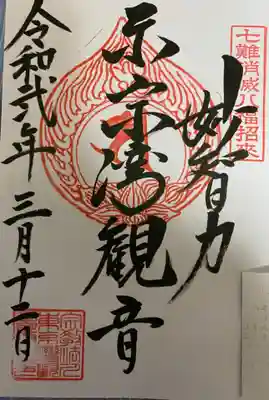 七難消滅七福招来
妙智力
東京湾観音
令和弐年 三月十二日